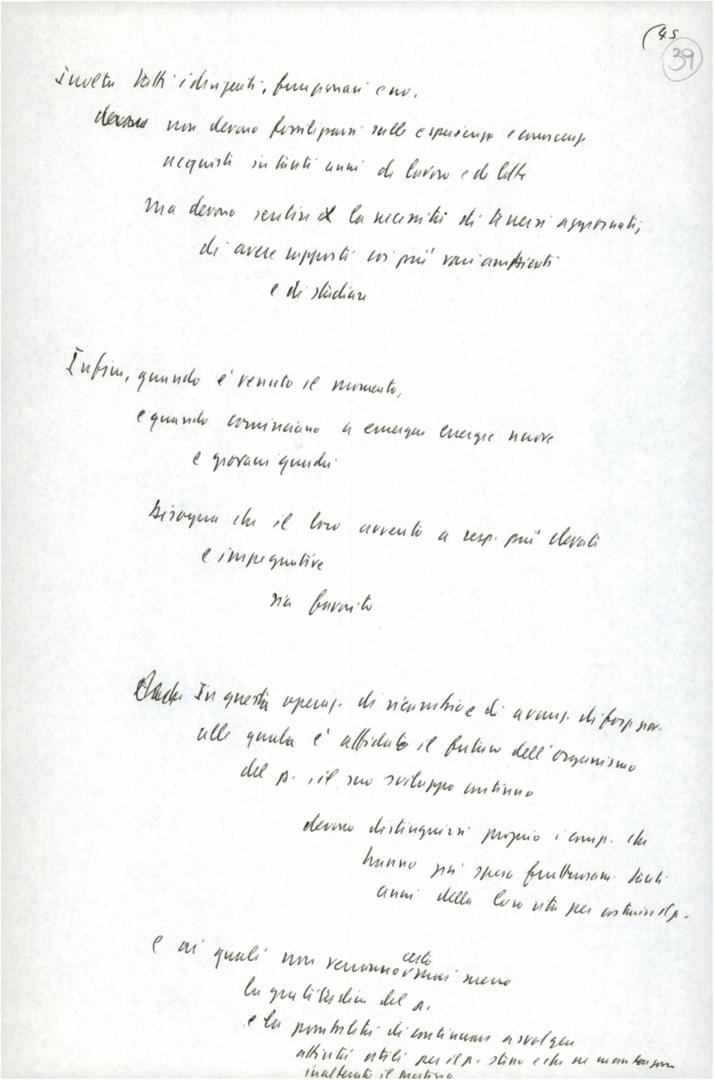 (45
39
Inoltre tutti i dirigenti, funzionari e no,
devono non devono fossilizzarsi sulle esperienze e conoscenze
acquisiti in tanti anni di lavoro e di lotte
ma devono sentire la necessità di tenersi aggiornati,
di avere rapporti coi più vari ambienti
e di studiare
Infine, quando è venuto il momento,
e quando cominciano a emergere energie nuove
e giovani quadri
bisogna che il loro avvento a resp. più elevati
e impegnative
sia favorito
In questa operaz. di ricambio e di avanz. di forze giov.
alle quali è affidato il futuro dell'organismo
del p., il suo sviluppo continuo
devono distinguersi proprio i comp. che
hanno più speso fruttuosam. tanti
anni della loro vita per costruire il p.
e ai quali non verranno certo mai meno
la gratitudine del p.
e la possibilità di continuare a svolgere
attività utili per il p. stesso e che ne mantengano
inalterato il prestigio